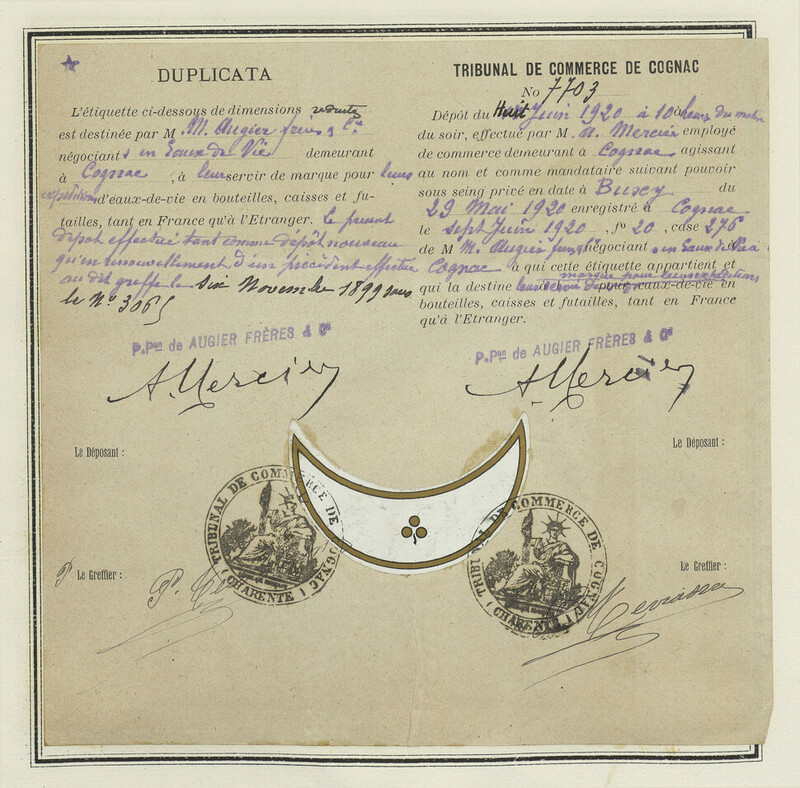 DUPLICATA
L'étiquette ci-dessous de dimensions réduites
est destinée par M. M. Augier frères & Cie
négociants en Eaux de Vie demeurant
à Cognac, à leur servir de marque pour leurs
expéditions d'eaux-de-vie en bouteilles, caisses et fu-
tailles, tant en France qu'à l'Etranger. Le présent
dépôt effectué tant comme dépôt nouveau
qu'en renouvellement d'un précédent effectué
au dit greffe le Six Novembre 1899 sous
le No 3065
P.Pon de AUGIER FRÈRES & Cie
A. Mercier
Le Déposant :
Le Greffier :
TRIBUNAL DE COMMERCE DE COGNAC
(CHARENTE)
TRIBUNAL DE COMMERCE DE COGNAC
No 7703
Dépôt du Huit Juin 1920 à 10 heures du matin
du soir, effectué par M. A. Mercier employé
de commerce demeurant à Cognac agissant
au nom et comme mandataire suivant pouvoir
sous seing privé en date à du
29 Mai 1920 enregistré à Cognac
le sept Juin 1920, fo 20, case 276
de M M. Augier frères négociants en Eaux de Vie à
Cognac à qui cette étiquette appartient et
qui la destine marque pour leurs expéditions d'eaux-de-vie en
bouteilles, caisses et futailles, tant en France
qu'à l'Etranger.
P.Pon de AUGIER FRÈRES & Cie
A. Mercier
Le Déposant :
Le Greffier :
TRIBUNAL DE COMMERCE DE COGNAC
(CHARENTE)